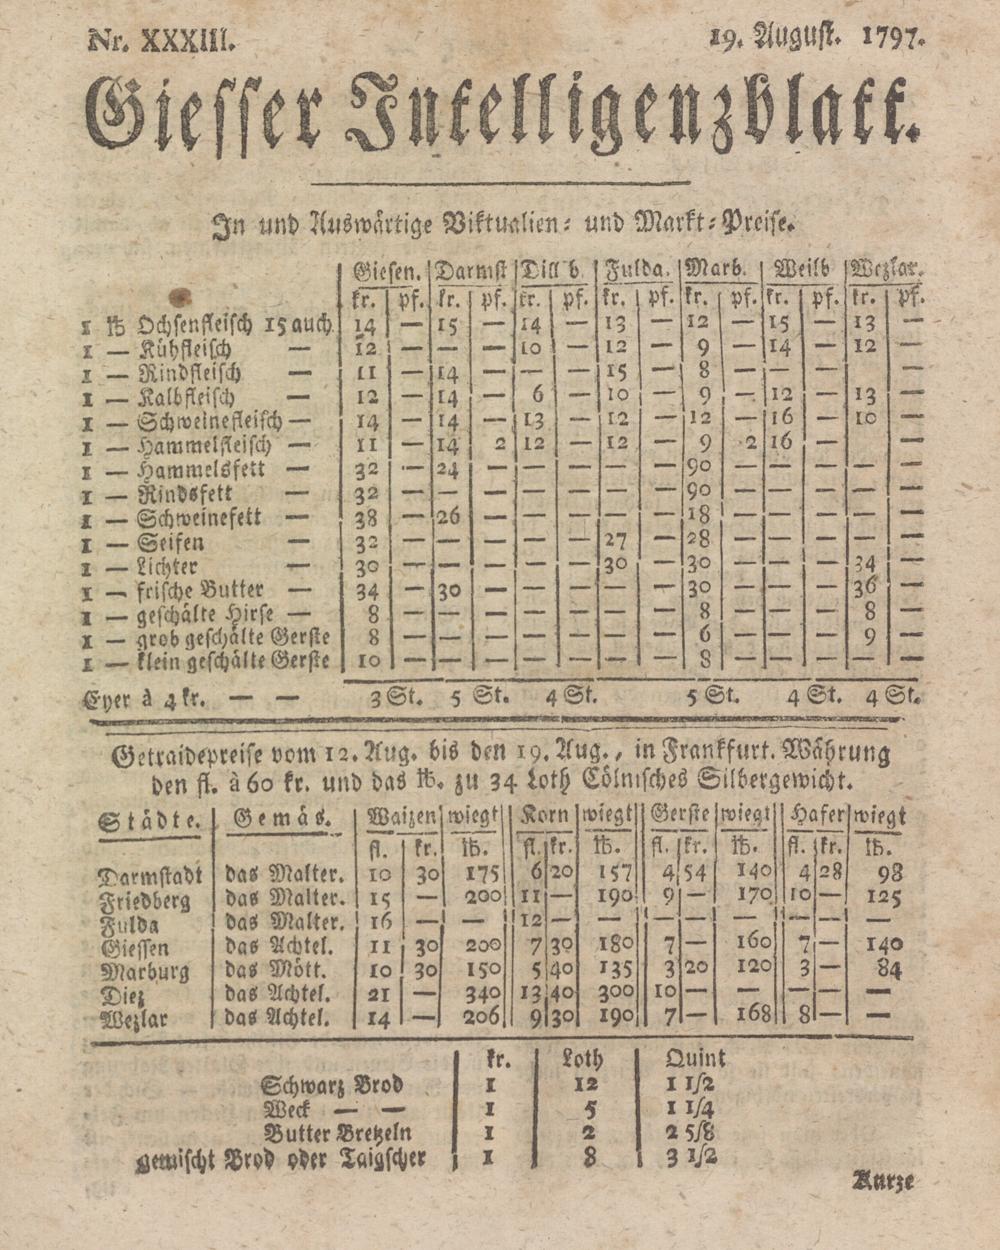 Nr. XXXIII. 19. August. 1797.
Giesser Intelligenzblatt.
In und Auswärtige Viktualien- und Markt-Preise.
Giesen. Darmst Dill b. Fulda. Marb. Weilb Wezlar.
kr. pf. kr. pf. kr. pf. kr. pf. kr. pf. kr. pf. kr. pf.
1 ℔ Ochsenfleisch 15 auch 14 — 15 — 14 — 13 — 12 — 15 — 13 —
1 — Kühfleisch — 12 — — — 10 — 12 — 9 — 14 — 12 —
1 — Rindfleisch — 11 — 14 — — — 15 — 8 — — — —
1 — Kalbfleisch — 12 — 14 — 6 — 10 — 9 — 12 — 13 —
1 — Schweinefleisch — 14 — 14 — 13 — 12 — 12 — 16 — 10 —
1 — Hammelfleisch — 11 — 14 2 12 — 12 — 9 2 16 — —
1 — Hammelsfett — 32 — 24 — — — — — 90 — — — — —
1 — Rindsfett — 32 — — — — — — — 90 — — — — —
1 — Schweinefett — 38 — 26 — — — — — 18 — — — — —
1 — Seifen — 32 — — — — — 27 — 28 — — — — —
1 — Lichter — 30 — — — — — 30 — 30 — — — 34 —
1 — frische Butter — 34 — 30 — — — — — 30 — — — 36 —
1 — geschälte Hirse — 8 — — — — — — — 8 — — — 8 —
1 — grob geschälte Gerste 8 — — — — — — — 6 — — — 9 —
1 — klein geschälte Gerste 10 — — — — — — — 8 — — — — —
Eyer à 4 kr. — — 3 St. 5 St. 4 St. 5 St. 4 St. 4 St.
Getraidepreise vom 12. Aug. bis den 19. Aug., in Frankfurt. Währung
den fl. à 60 kr. und das ℔. zu 34 Loth Cölnisches Silbergewicht.
Städte. Gemäs. Waizen wiegt Korn wiegt Gerste wiegt Hafer wiegt
fl. kr. ℔. fl. kr. ℔. fl. kr. ℔. fl. kr. ℔.
Darmstadt das Malter. 10 30 175 6 20 157 4 54 140 4 28 98
Friedberg das Malter. 15 — 200 11 — 190 9 — 170 10 — 125
Fulda das Malter. 16 — — 12 — — — — — — — —
Giessen das Achtel. 11 30 200 7 30 180 7 — 160 7 — 140
Marburg das Mött. 10 30 150 5 40 135 3 20 120 3 — 84
Diez das Achtel. 21 — 340 13 40 300 10 — — — — —
Wezlar das Achtel. 14 — 206 9 30 190 7 — 168 8 — —
kr. Loth Quint
Schwarz Brod 1 12 1 1/2
Weck — — 1 5 1 1/4
Butter Bretzeln 1 2 2 5/8
gemischt Brod oder Taigscher 1 8 3 1/2
Kurze